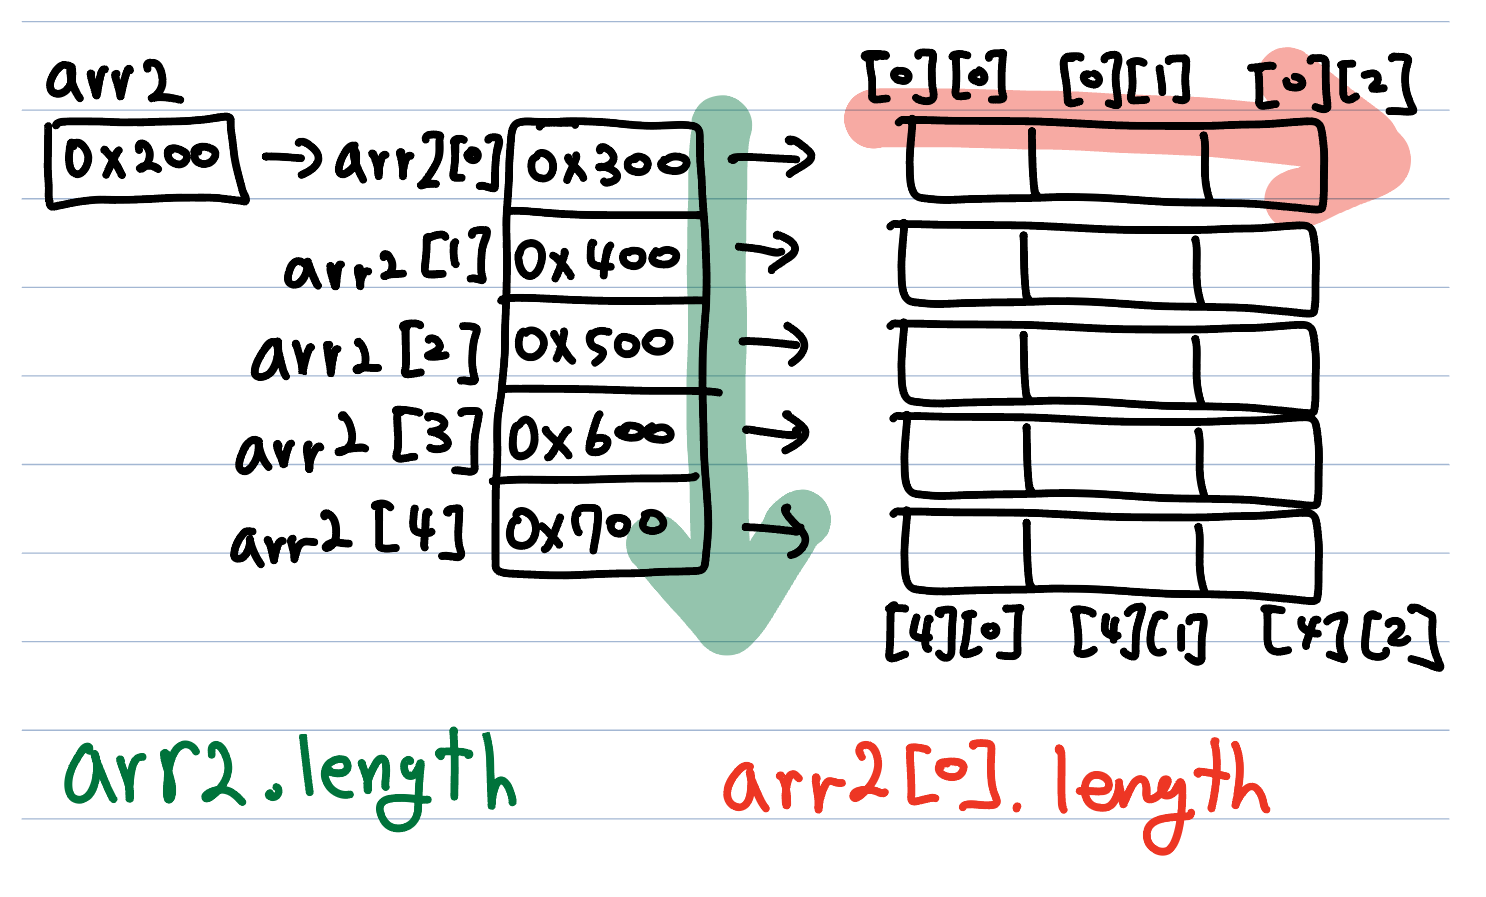 arr2
[0][0] [0][1] [0][2]
0x200 → arr2[0] 0x300 →
arr2[1] 0x400 →
arr2[2] 0x500 →
arr2[3] 0x600 →
arr2[4] 0x700 →
[4][0] [4][1] [4][2]
arr2.length arr2[0].length